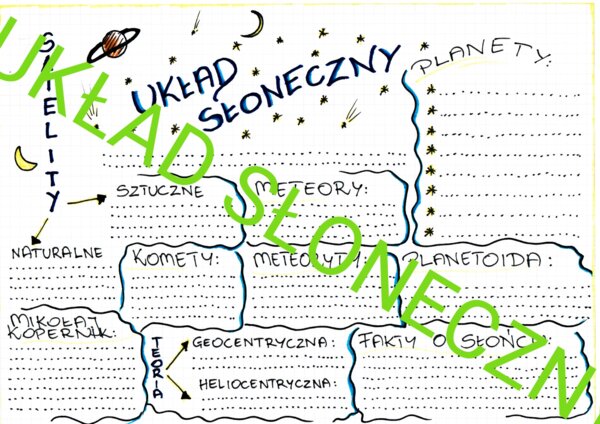 UKŁAD SŁONECZNY
UKŁAD
SŁONECZNY
PLANETY:
SATELITY
SZTUCZNE
METEORY:
NATURALNE
KOMETY:
METEORYTY:
PLANETOIDA:
MIKOŁAJ
KOPERNIK:
TEORIA
GEOCENTRYCZNA:
HELIOCENTRYCZNA:
FAKTY O SŁOŃCU: